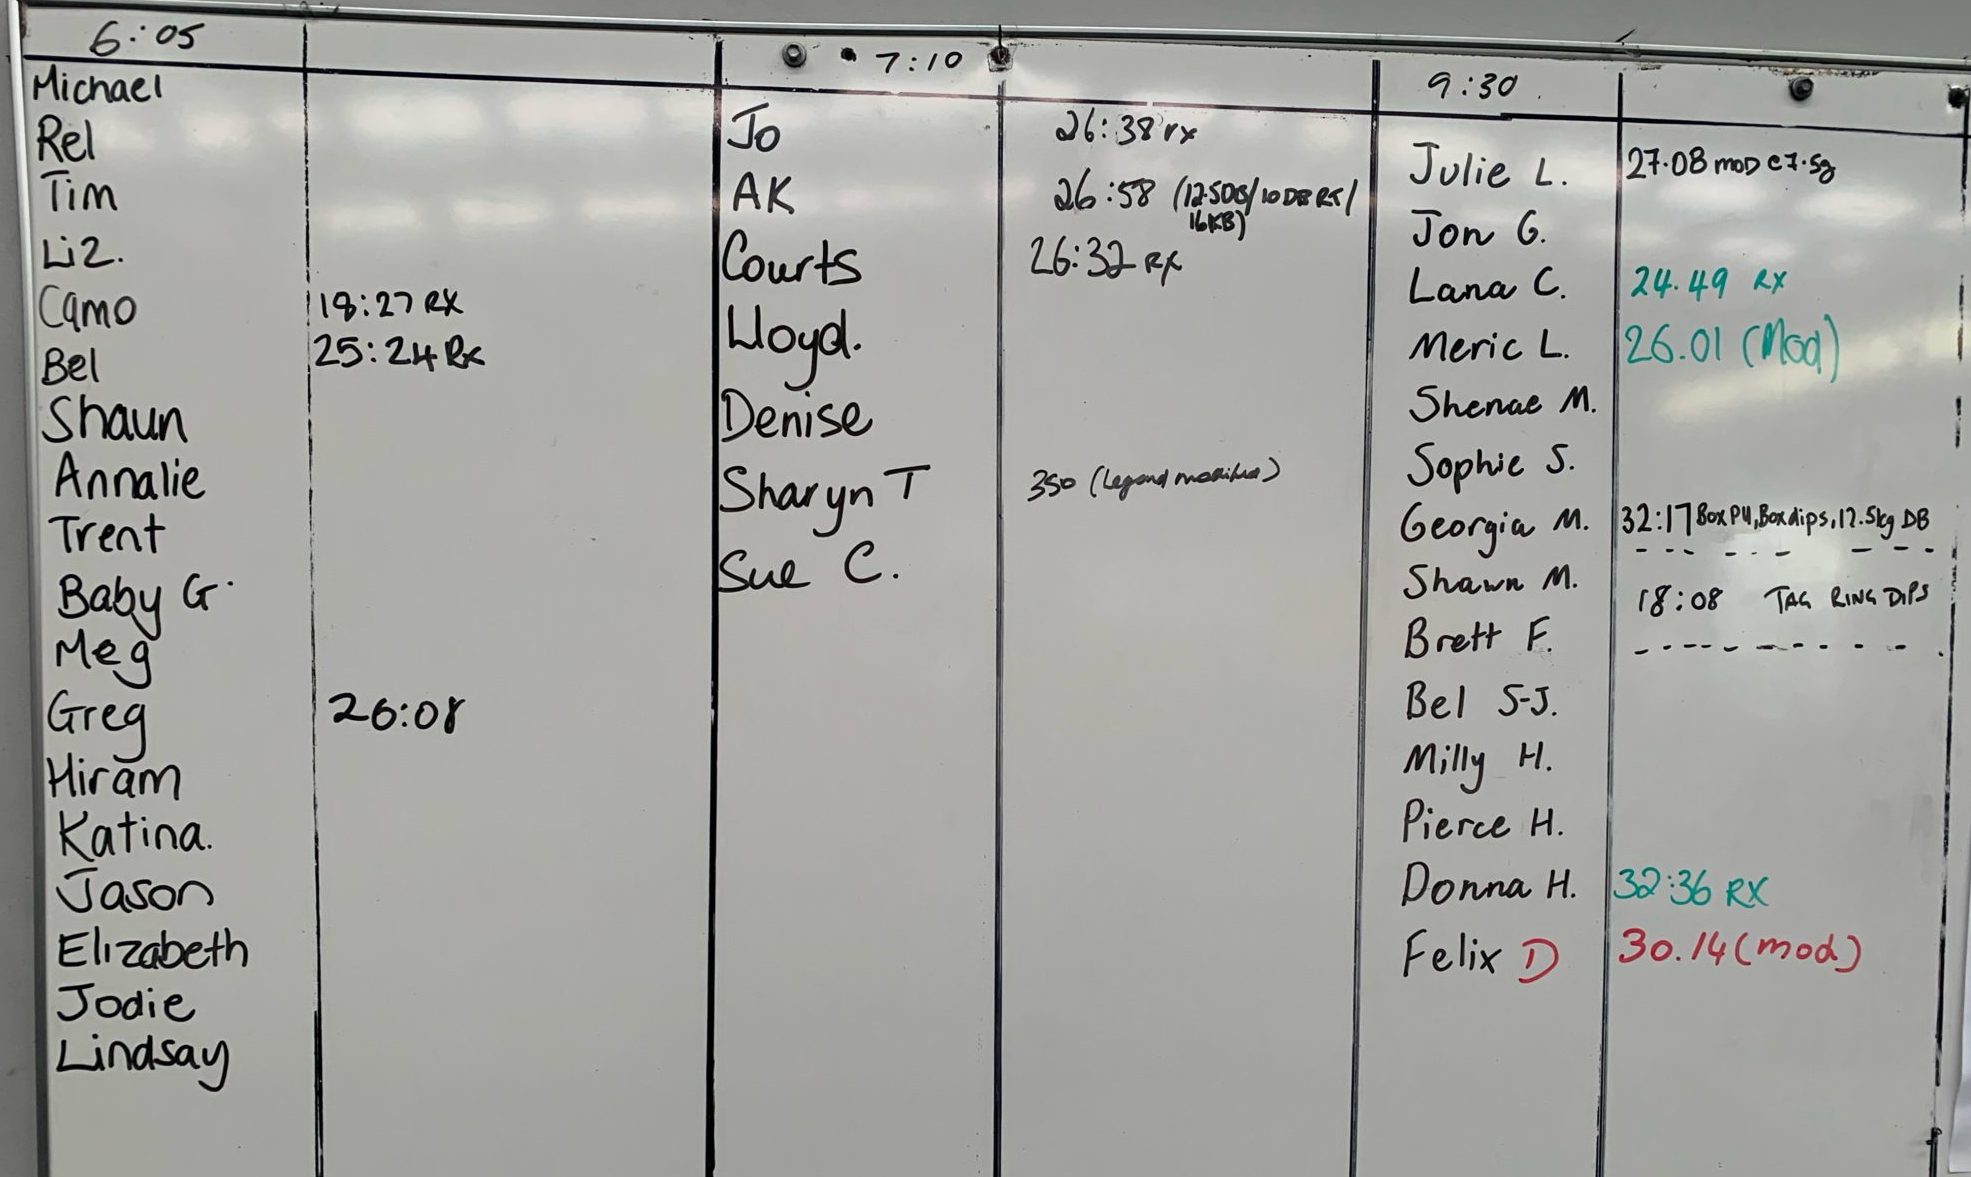 6:05
Michael
Rel
Tim
Liz.
Camo 18:27 RX
Bel 25:24 RX
Shaun
Annalie
Trent
Baby G.
Meg
Greg 26:08
Hiram
Katina.
Jason
Elizabeth
Jodie
Lindsay
7:10
Jo 26:38 rx
AK 26:58 (12.5DB/10DB RT/
16KB)
Courts 26:32 RX
Lloyd.
Denise
Sharyn T 350 (Legend modified)
Sue C.
9:30
Julie L. 27.08 MOD @7.5g
Jon G.
Lana C. 24.49 RX
Meric L. 26.01 (Mod)
Shenae M.
Sophie S.
Georgia M. 32:17 Box PU, Box dips, 12.5kg DB
Shawn M.
18:08 TAG RING DIPS
Brett F.
Bel S-J.
Milly H.
Pierce H.
Donna H. 32:36 RX
Felix D 30.14 (mod)